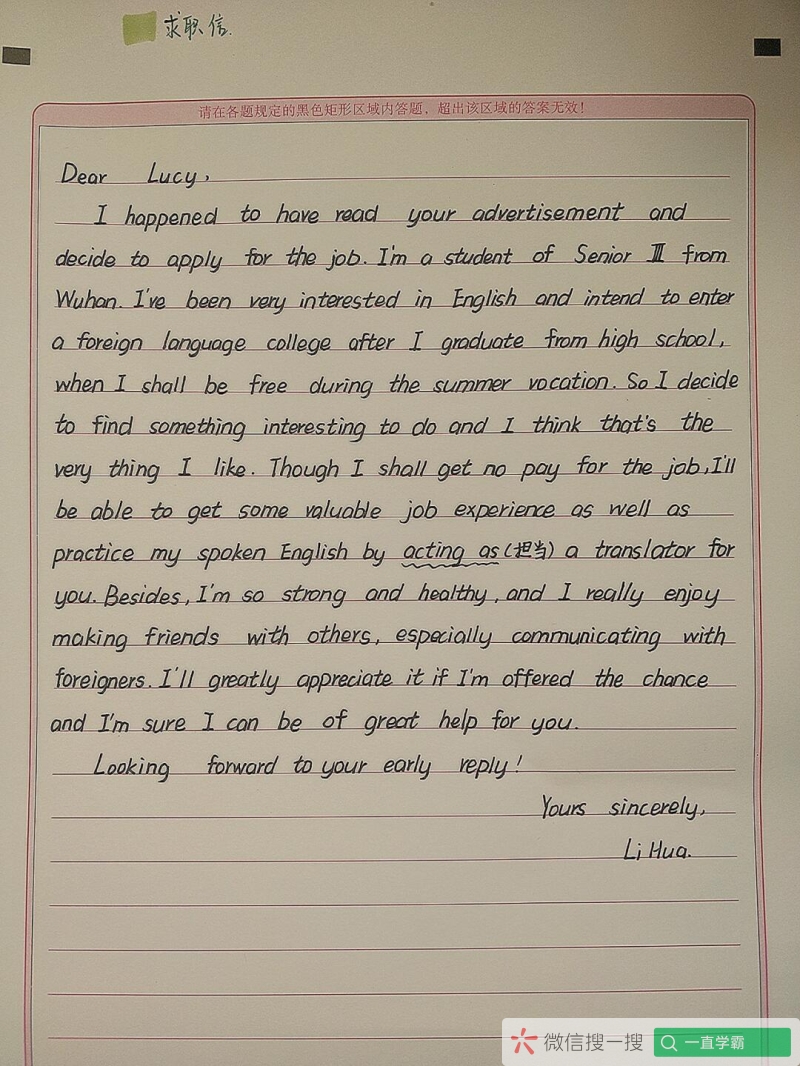 求职信.
请在各题规定的黑色矩形区域内答题，超出该区域的答案无效！
Dear Lucy,
I happened to have read your advertisement and
decide to apply for the job. I'm a student of Senior Ⅲ from
Wuhan. I've been very interested in English and intend to enter
a foreign language college after I graduate from high school,
when I shall be free during the summer vocation. So I decide
to find something interesting to do and I think that's the
very thing I like. Though I shall get no pay for the job, I'll
be able to get some valuable job experience as well as
practice my spoken English by acting as (担当) a translator for
you. Besides, I'm so strong and healthy, and I really enjoy
making friends with others, especially communicating with
foreigners. I'll greatly appreciate it if I'm offered the chance
and I'm sure I can be of great help for you.
Looking forward to your early reply!
Yours sincerely,
Li Hua.
微信搜一搜 一直学霸